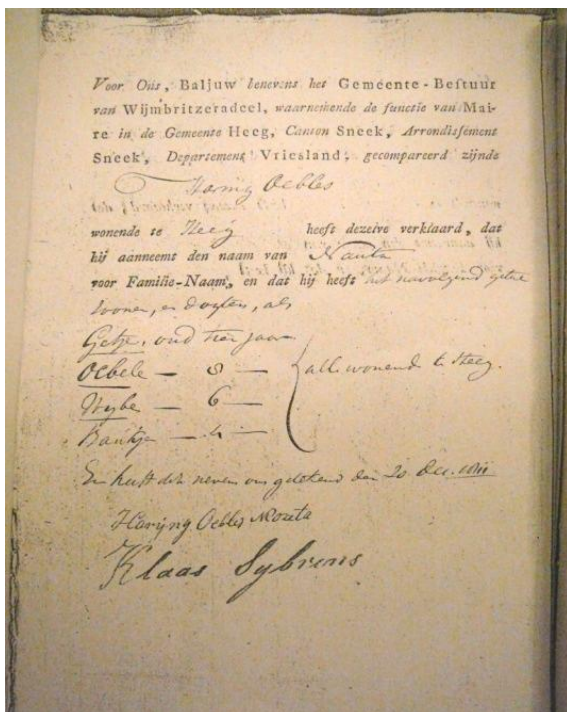 Voor Ons, Baljuw benevens het Gemeente-Bestuur
van Wijmbritzeradeel, waarnemende de functie van Mai-
re in de Gemeente Heeg, Canton Sneek, Arrondissement
Sneek, Departement Vriesland, gecompareerd zijnde
Haring Oebles
wonende te Heeg heeft dezelve verklaard, dat
hij aanneemt den naam van Nauta
voor Familie-Naam, en dat hij heeft het navolgend getal
Zonen, en Dogters, als
Getje, oud tien jaar
Oebele — 8 —
Wybe — 6 — alle wonend te Heeg.
Baukje — 4 —
En heeft dit neven ons getekend den 20 Dec. 1811
Haryng Oebles Nouta
Klaas Sybrens